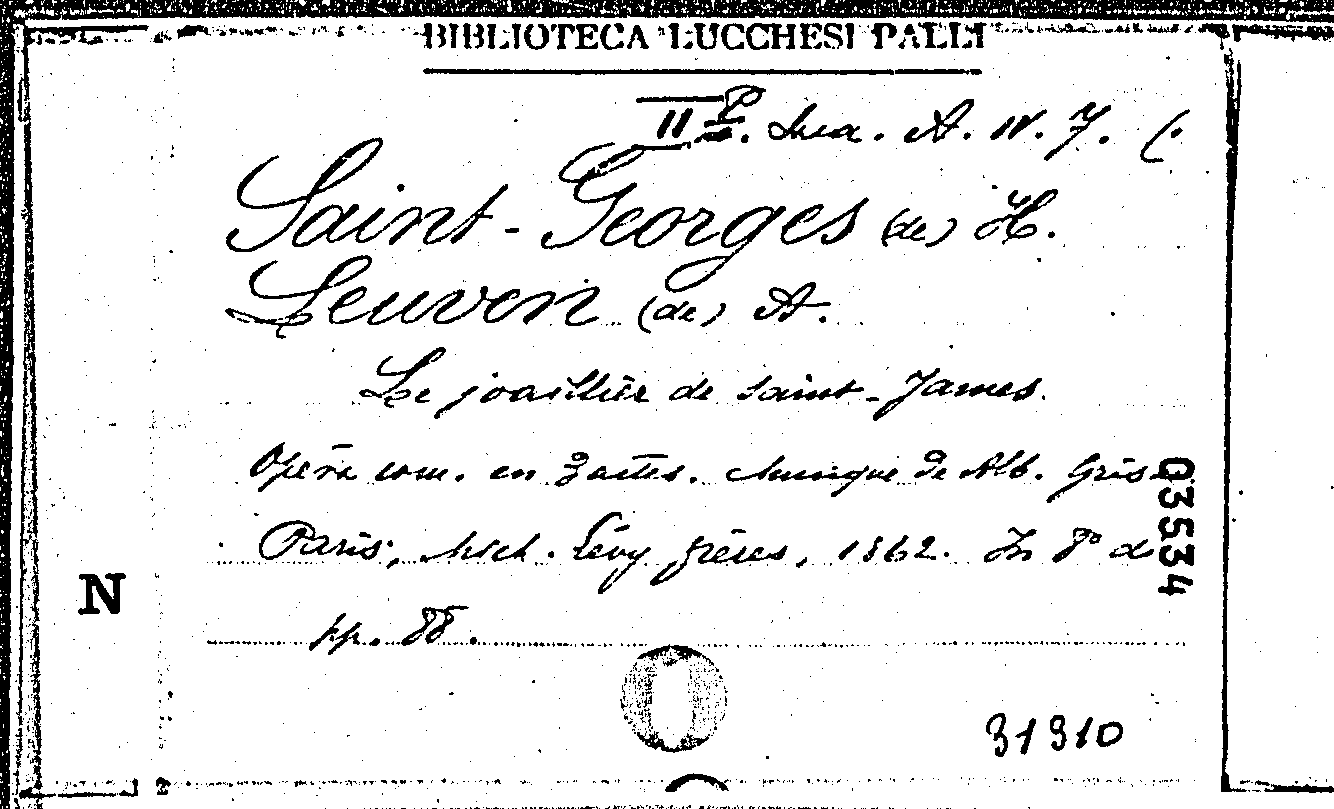 BIBLIOTECA LUCCHESI PALLI
II P. Sua. A. IV. 7. (.
Saint-Georges (de) H.
Leuven (de) A.
Le joaillier de Saint-James.
Opéra com. en 3 actes. Musique de Alb. Gris
Paris, Mich. Lévy frères, 1862. In 8º di
pp. 88.
03534
N
31310
2